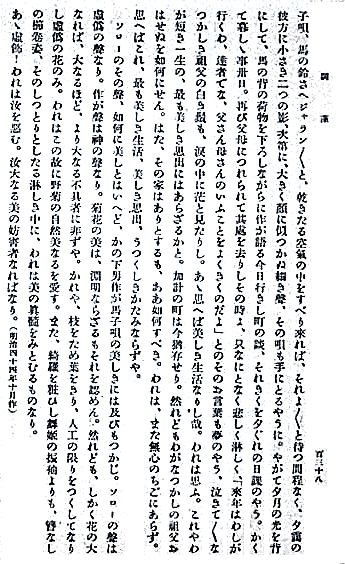 子唄、馬の鈴さへジャラン〱と、乾きたる空氣の中をすべり來れば、それよ〱と待つ間程なく、夕靄の
彼方に小さき二つの影、次第に、大きく顏に似つかぬ細き聲、その唄も手にとるやうに。やがて夕月の光を背
にして、馬の背の荷物を下ろしながらに作が語る今日行きし町の談、それきくを夕ぐれの日課のやう。かく
て暮し事卅日。再び父母につれられて其處を去りしその時よ、只なにとなく悲しく淋しく、「來年はわしが
行くわ、達者でな、父さん母さんのいふことをよくきくのだよ」とのそのお言葉も夢のやう、泣きて〱な
つかしき祖父の白き鬚も、涙の中に花と見たりし。あゝ思へば美しき生活なりし哉。われは思ふ。これやわ
が短き一生の、最も美しき思出にはあらざるかと。加計の町は今猶存せり。然れどもわがなつかしの祖父お
はせぬを如何にせん。はた、その家はありとするも、あゝ如何すべき。われは、また無心のちごにあらず。
思へばこれ、最も美しき生活、美しき思出、うつくしきかたみならずや。
ソローのその聲、如何に美しとはいへど、かの下男作が馬子唄の美しきには及びもつかじ。ソローの聲は
虛僞の聲なり。作が聲は神の聲なり。菊花の美は、淵明ならざるもそれを認めん。然れども、しかく花の大
なれば、大なるほど、より大なる不具者に非ずや。かれや、枝をため葉をきり、人工の限りをつくしてなり
し虛僞の花のみ。われはこの故に野菊の自然美なるを愛す。また、綺羅を粧ひし舞姬の振袖よりも、簪なし
の島卷姿、そのしつとりとしたる淋しき中に、われは美の眞髓をみとむるものなり。
あゝ虛僞！われは汝を惡む。汝大なる美の妨害者なればなり。（明治四十四年十月作）
百三十八